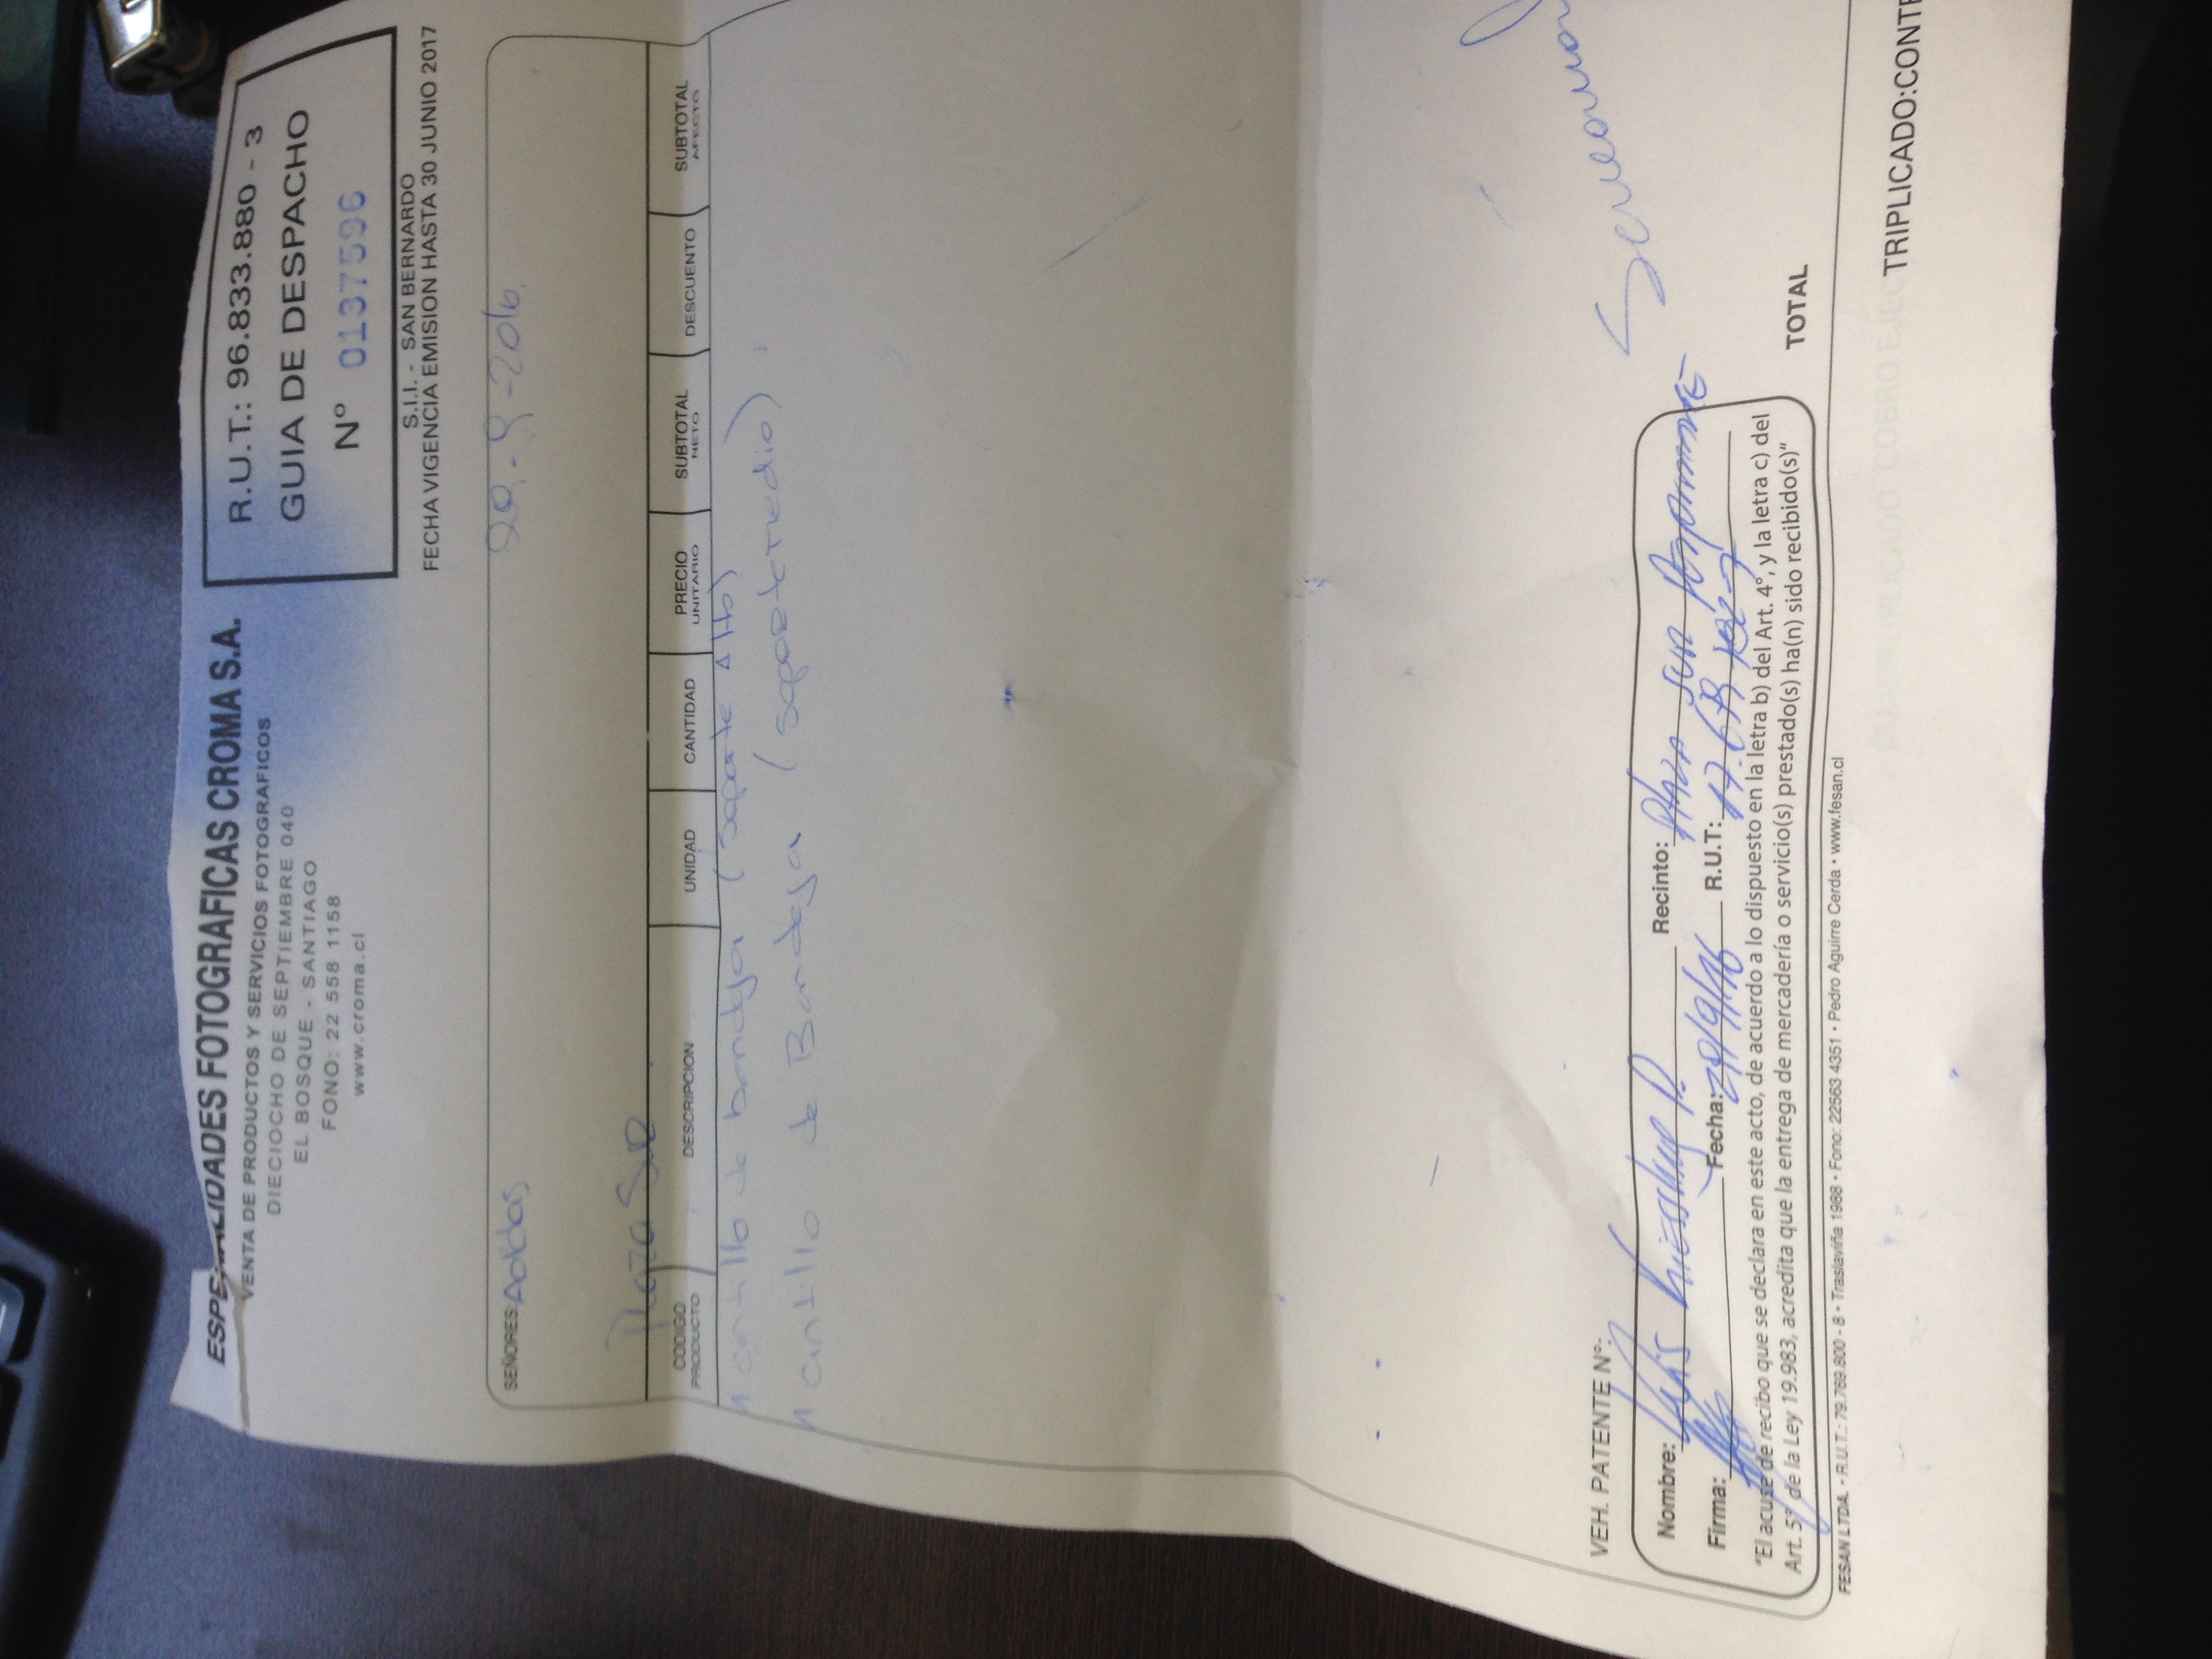 ESPECIALIDADES FOTOGRAFICAS CROMA S.A.
VENTA DE PRODUCTOS Y SERVICIOS FOTOGRAFICOS
DIECIOCHO DE SEPTIEMBRE 040
EL BOSQUE - SANTIAGO
FONO: 22 558 1158
www.croma.cl
R.U.T.: 96.833.880 - 3
GUIA DE DESPACHO
Nº 0137596
S.I.I. - SAN BERNARDO
FECHA VIGENCIA EMISION HASTA 30 JUNIO 2017
SEÑORES: Adidas
-9-2016
Plaza Sur
CODIGO PRODUCTO DESCRIPCION UNIDAD CANTIDAD PRECIO UNITARIO SUBTOTAL NETO DESCUENTO SUBTOTAL AFECTO
1 cintillo de bandeja (soporte Alto)
1 cintillo de Bandeja (soporte medio)
VEH. PATENTE Nº:
Nombre: Luis Recinto: Plaza Sur
Firma: Fecha: /9/16 R.U.T:
"El acuse de recibo que se declara en este acto, de acuerdo a lo dispuesto en la letra b) del Art. 4º, y la letra c) del
Art. 5º de la Ley 19.983, acredita que la entrega de mercadería o servicio(s) prestado(s) ha(n) sido recibido(s)"
TOTAL
FESAN LTDA. • R.U.T.: 79.769.800 - 8 • Traslaviña 1988 • Fono: 22563 4351 • Pedro Aguirre Cerda • www.fesan.cl
TRIPLICADO:CONT